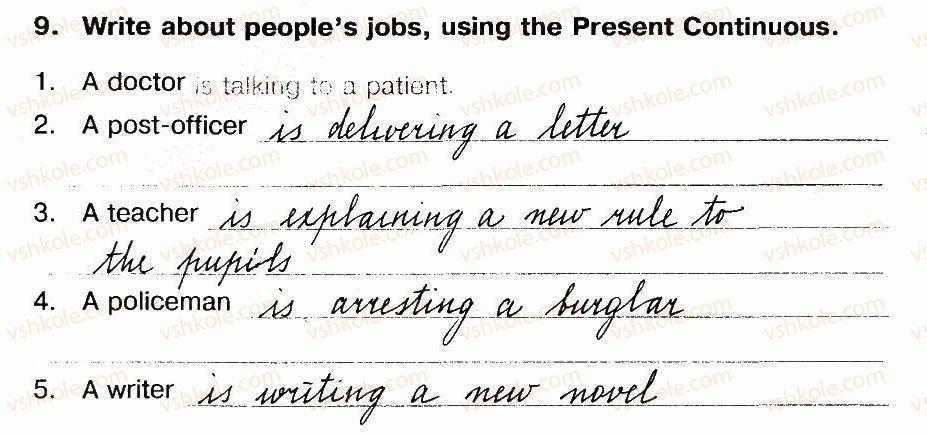 9. Write about people's jobs, using the Present Continuous.
1. A doctor is talking to a patient.
2. A post-officer is delivering a letter
3. A teacher is explaining a new rule to
the pupils
4. A policeman is arresting a burglar
5. A writer is writing a new novel